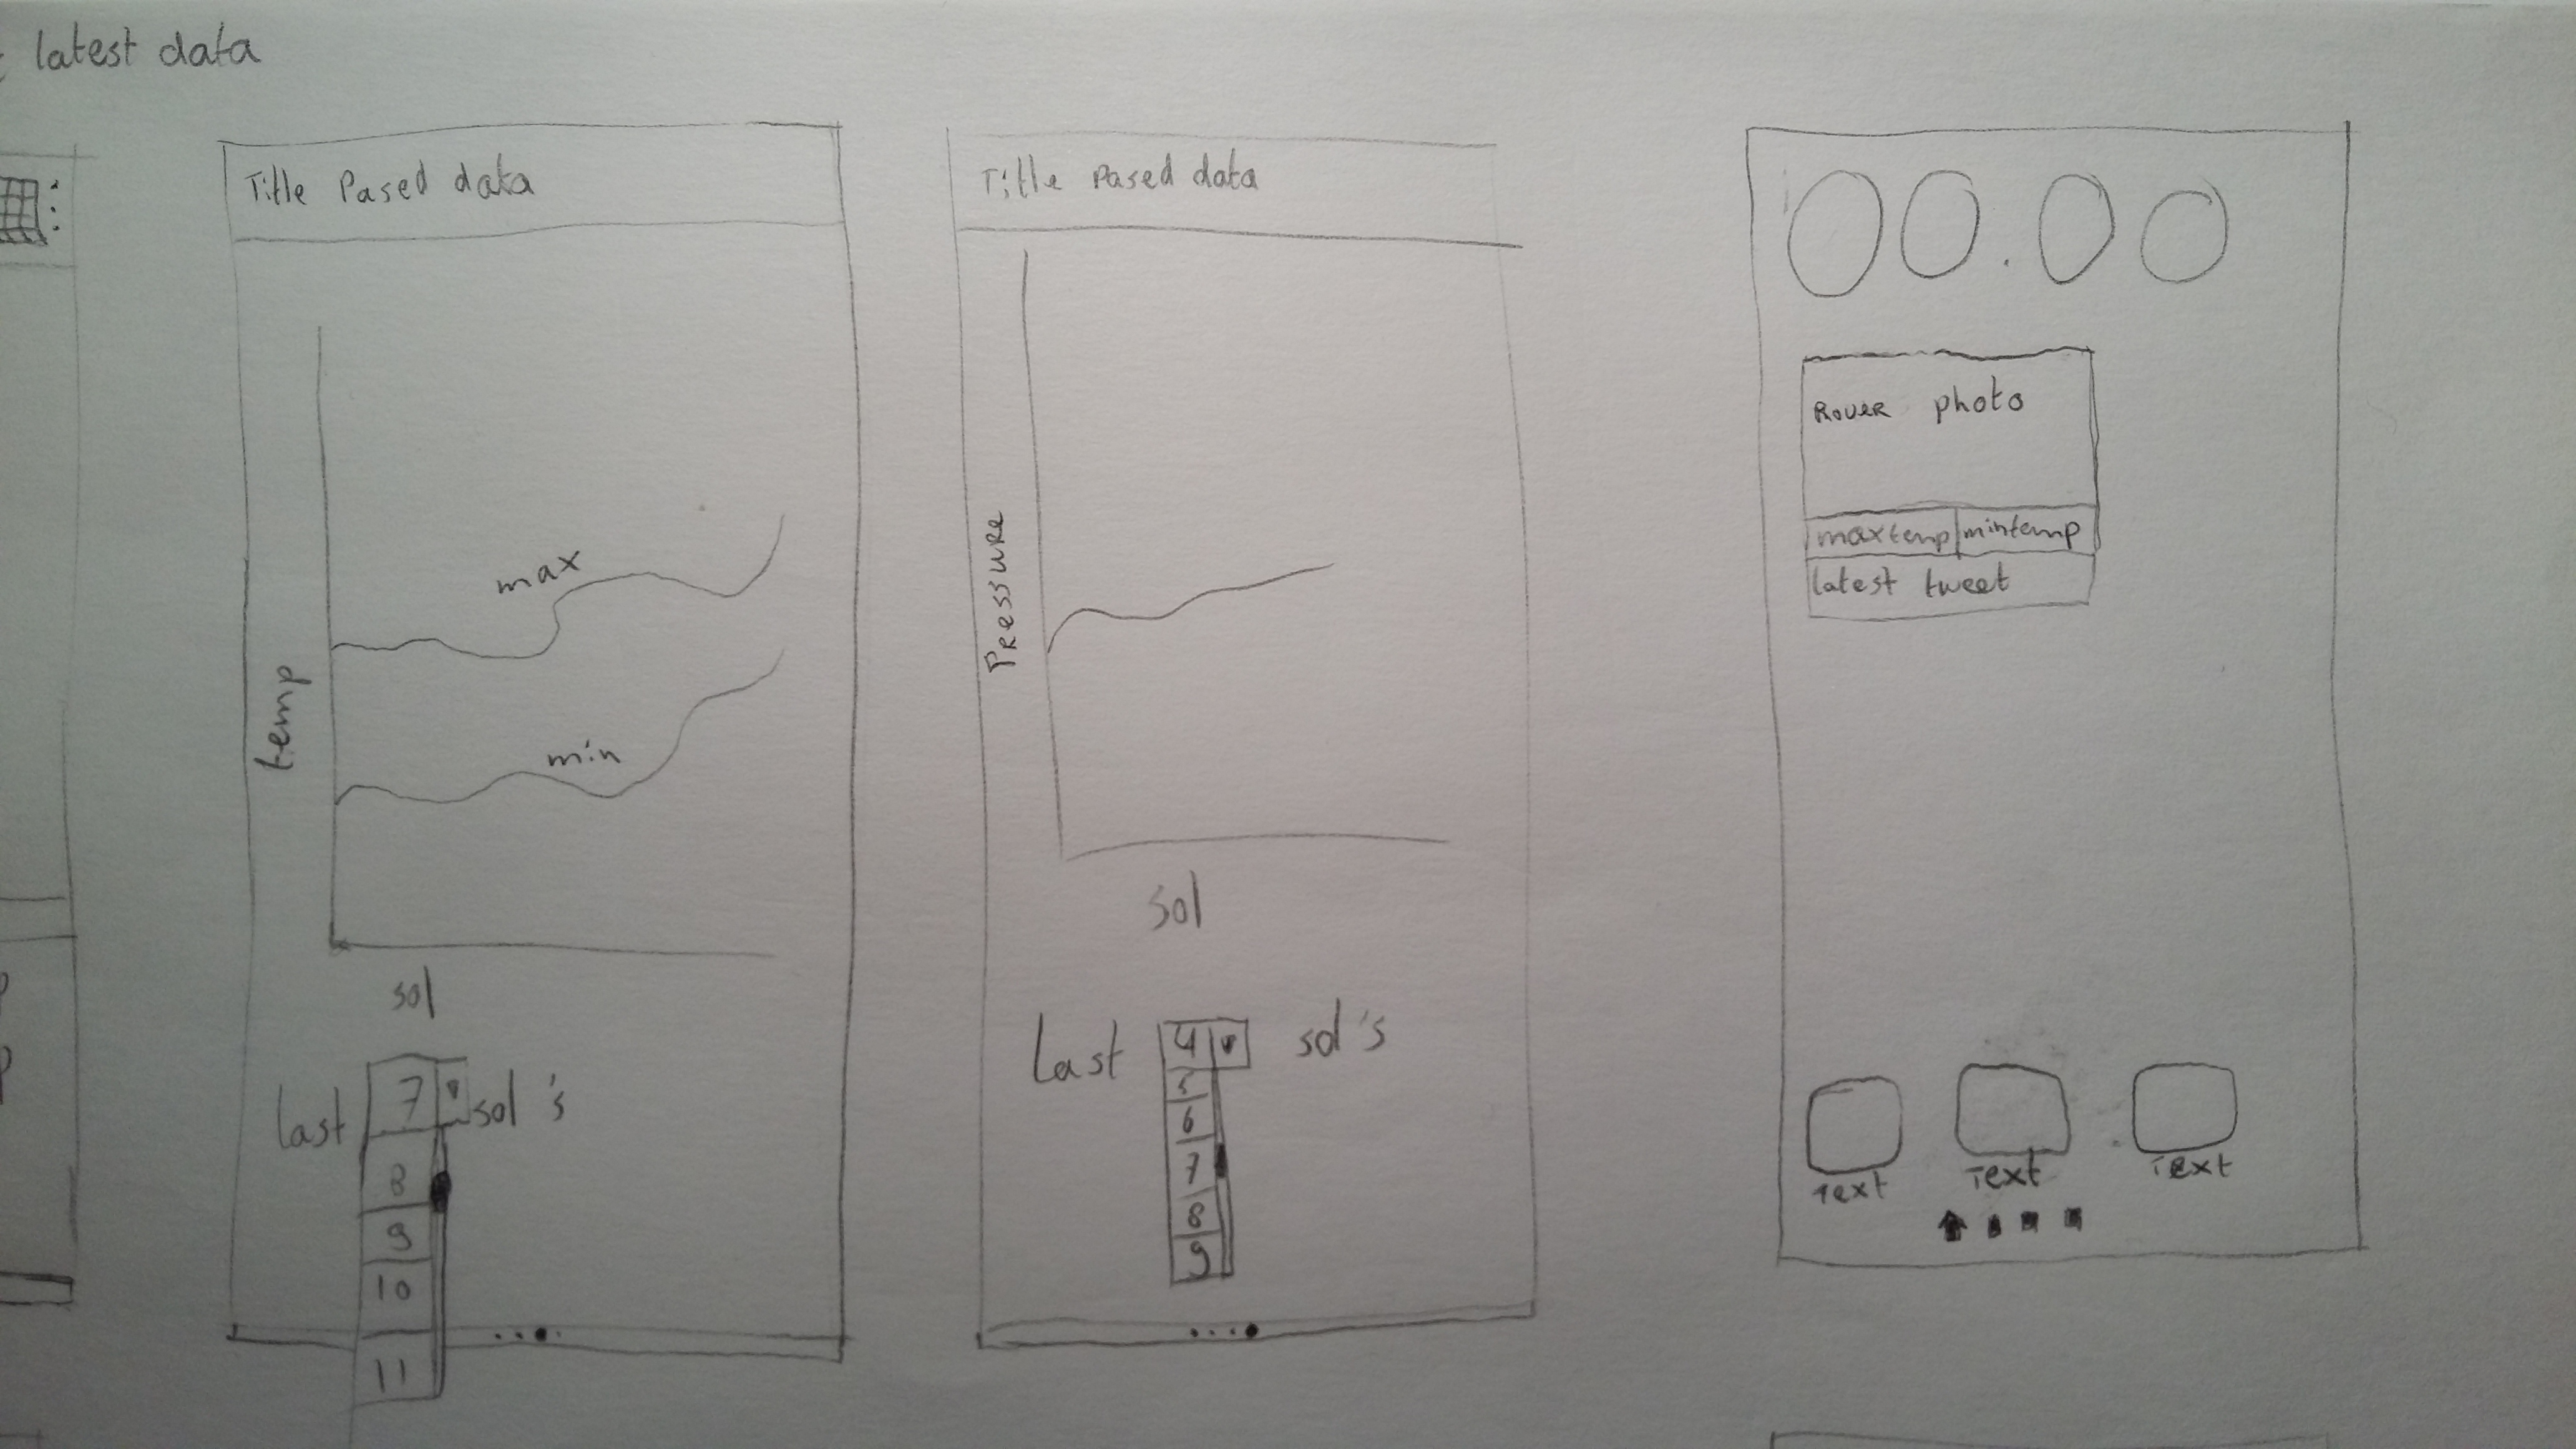 latest data
Title Pased data
temp
max
min
sol
last 7 sol's
8
9
10
11
Title Pased data
Pressure
Sol
Last 4 sol's
5
6
7
8
9
Rover photo
maxtemp mintemp
latest tweet
Text Text Text